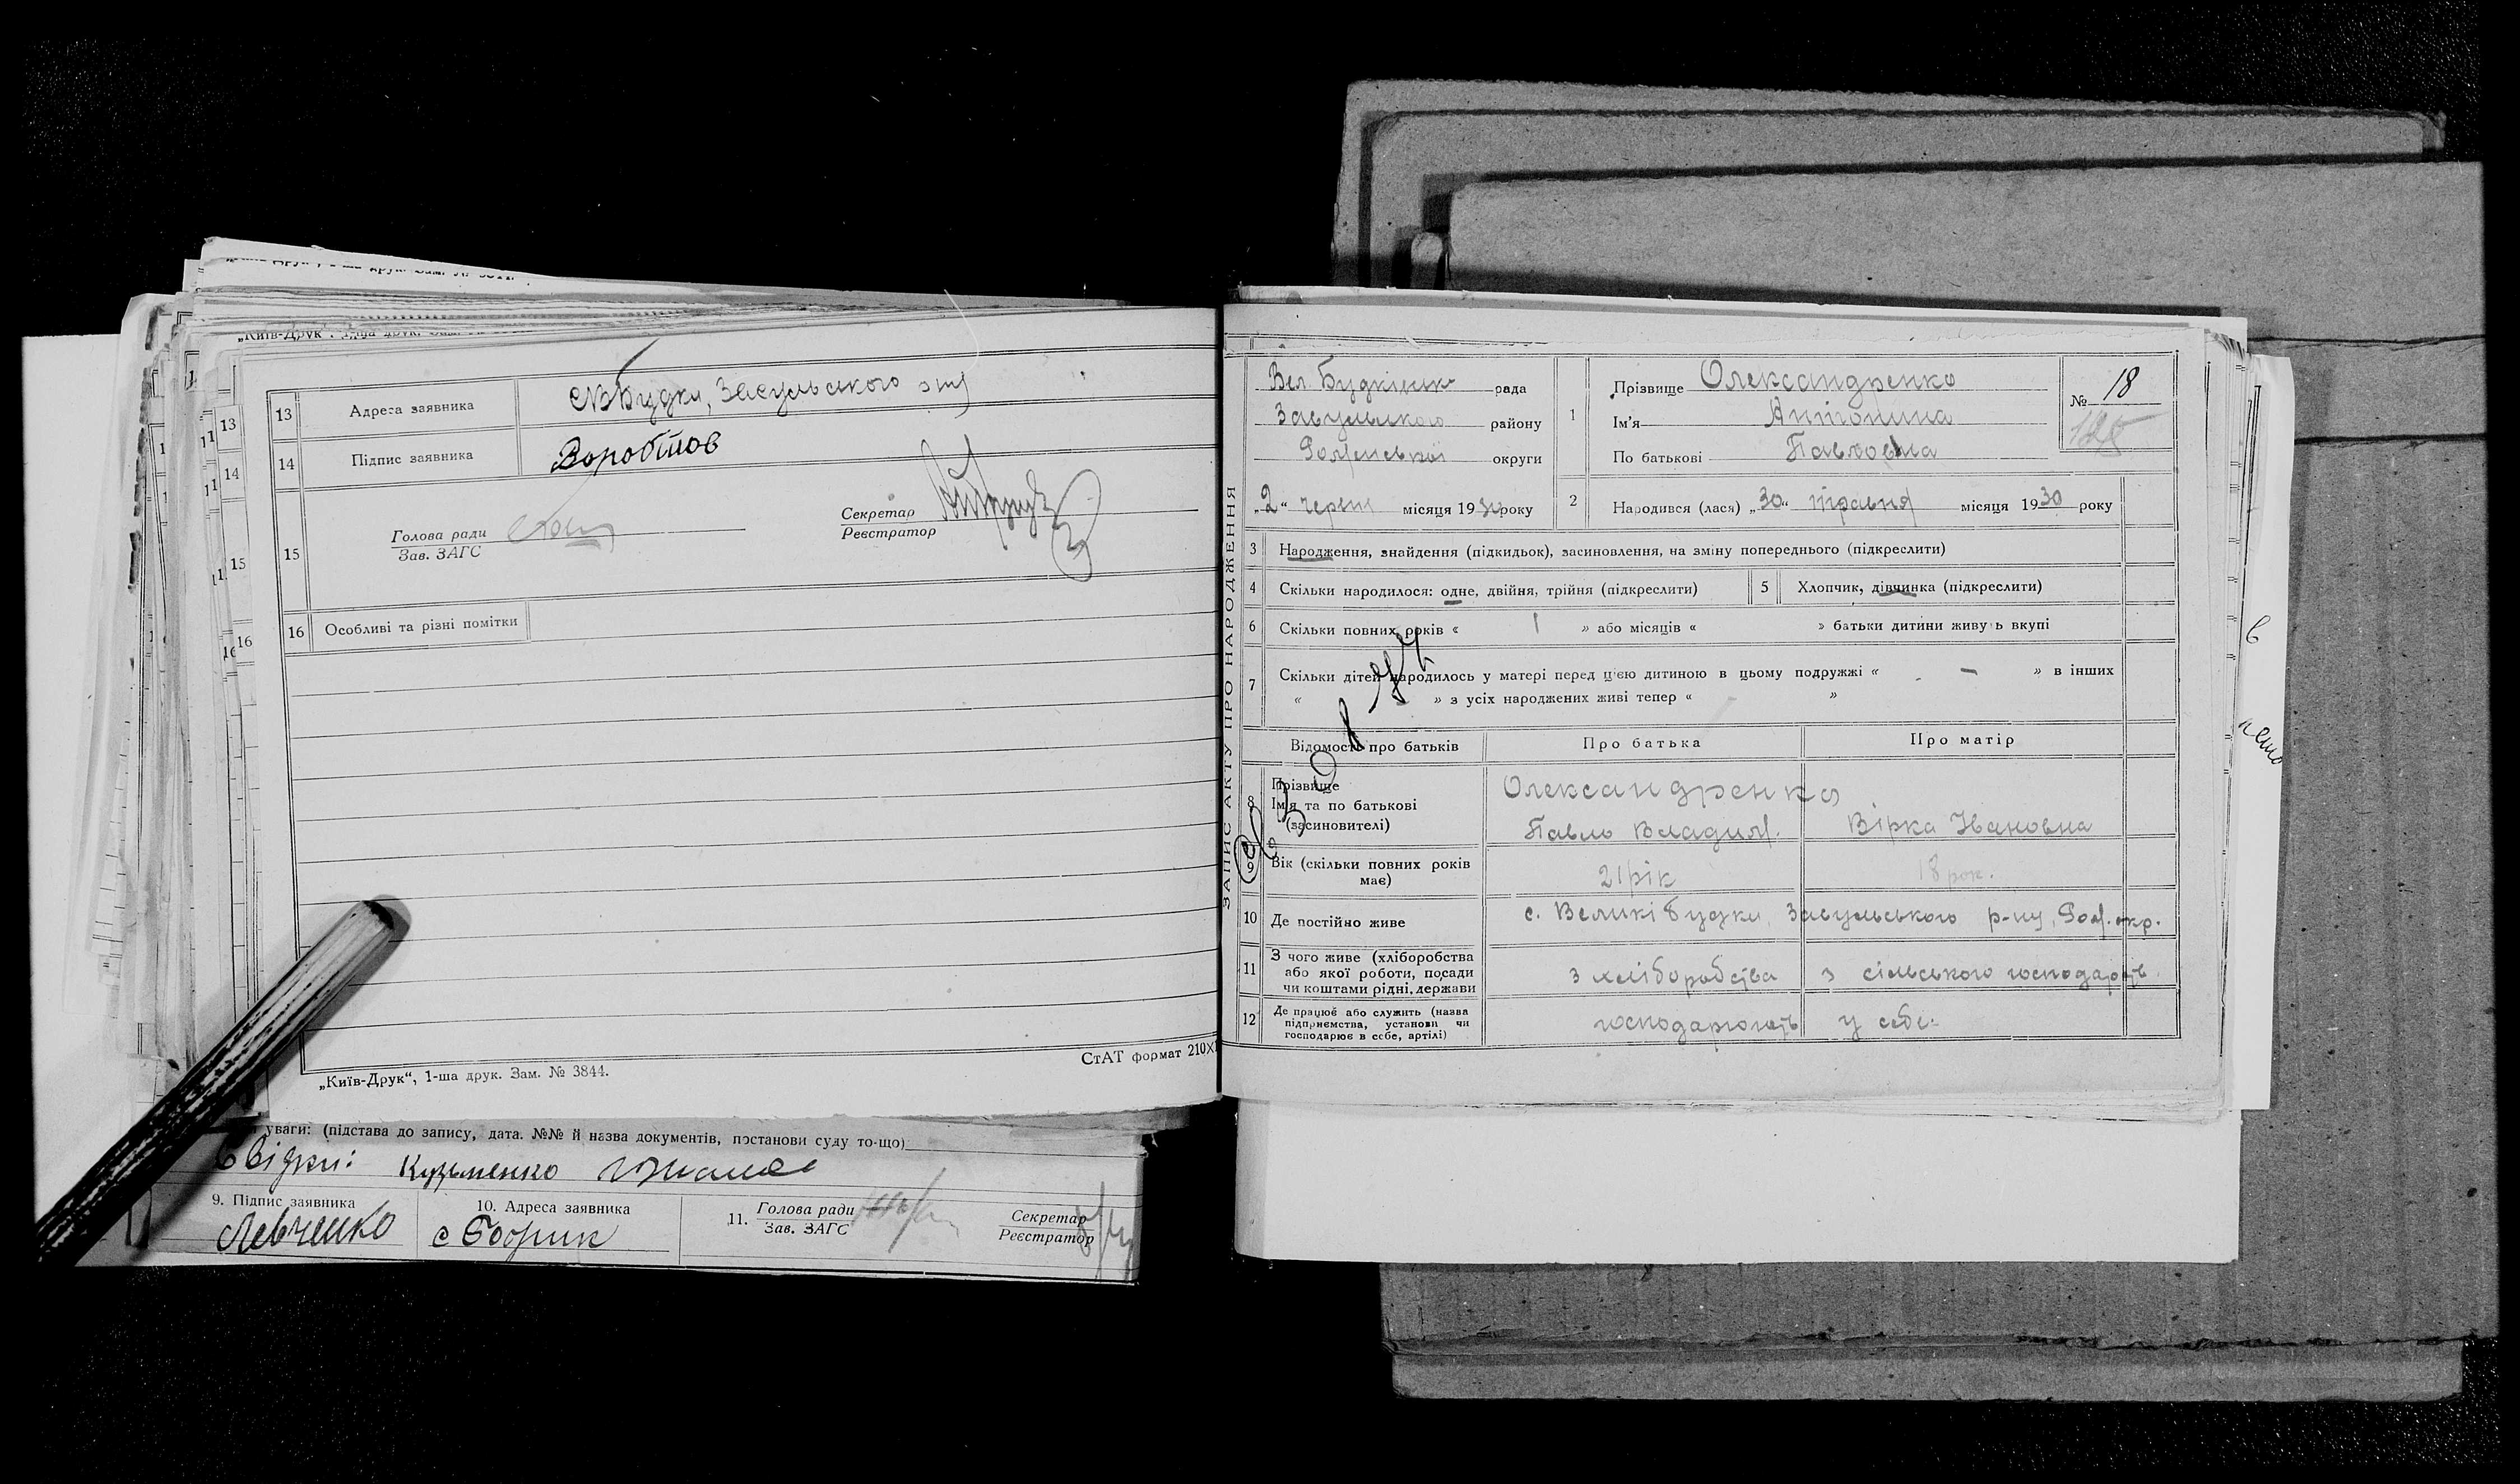 „Київ-Друк“, 1-ша друк. Зам. №
13 Адреса заявника с. В Будки, Засульського
14 Підпис заявника Воробйов
15 Голова ради
Зав. ЗАГС
Секретар
Реєстратор
16 Особливі та різні помітки
СтАТ формат 210Х
„Київ-Друк“, 1-ша друк. Зам. № 3844.
уваги: (підстава до запису, дата. №№ й назва документів, постанови суду то-що)
Свідки: Кузьменко
9. Підпис заявника
Левченко
10. Адреса заявника
11. Голова ради
Зав. ЗАГС
Секретар
Реєстратор
ЗАПИС АКТУ ПРО НАРОДЖЕННЯ
Вел. Будківськ рада
Засульського району
Роменської округи
„2“ червн місяця 1930 року
1 Прізвище Олександренко
Ім'я Антонина
По батькові Павловна
№ 18
2 Народився (лася) „30“ травня місяця 1930 року
3 Народження, знайдення (підкидьок), засиновлення, на зміну попереднього (підкреслити)
4 Скільки народилося: одне, двійня, трійня (підкреслити)
5 Хлопчик, дівчинка (підкреслити)
6 Скільки повних років « 1 » або місяців « » батьки дитини живуть вкупі
7 Скільки дітей народилось у матері перед цією дитиною в цьому подружжі « – » в інших
« » з усіх народжених живі тепер « »
Відомость про батьків Про батька Про матір
8 Прізвище
Ім'я та по батькові
(засиновителі)
Олександренко
Павло Владим. Вірка Івановна
9 Вік (скільки повних років
має)
21 рік 18 рок.
10 Де постійно живе с. Великі Будки, Засульського р-ну, Ром. окр.
11 З чого живе (хліборобства
або якої роботи, посади
чи коштами рідні, держави
з хліборобства з сільського господарств.
12 Де працює або служить (назва
підприємства, установи чи
господарює в себе, артілі)
господарюють у себе